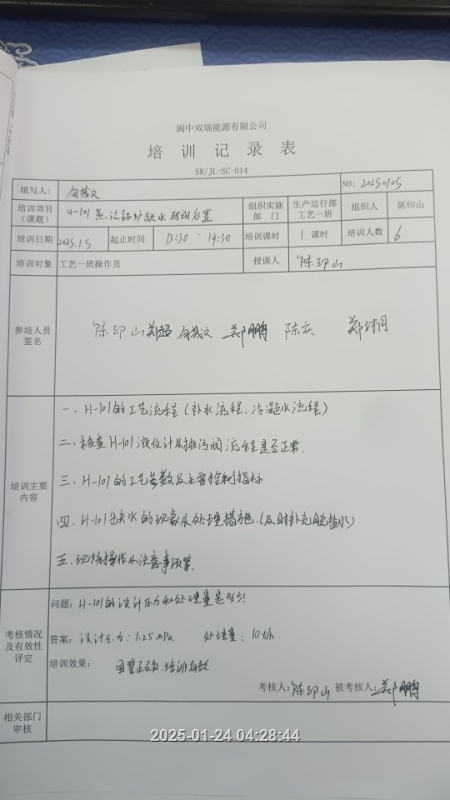 阆中双瑞能源有限公司
培训记录表
SR/JL-SC-014
填写人： NO: 20250105
培训项目（课题） H-101蒸汽锅炉缺水 处置 组织实施部门 生产运行部工艺一班 组织人 陈印山
培训日期 2025.1.5 起止时间 13:30 ~ 14:30 培训课时 1 课时 培训人数 6
培训对象 工艺一班操作员 授课人 陈印山
参培人员签名 陈印山 郑鹏 陈兵
培训主要内容
一、H-101的工艺流程（补水流程、冷凝水流程）
二、检查H-101液位计及排污阀流程是否正常.
三、H-101的工艺参数及主要控制指标
四、H-101缺水的现象及处理措施.（及时补充脱盐水）
五、现场操作及注意事项等.
考核情况及有效性评定
问题：H-101的设计压力和处理量是多少?
答案：设计压力：1.25mPa 处理量：10t/h
培训效果： 回答正确.培训有效
考核人：陈印山 被考核人：郑鹏
相关部门审核
2025-01-24 04:28:44